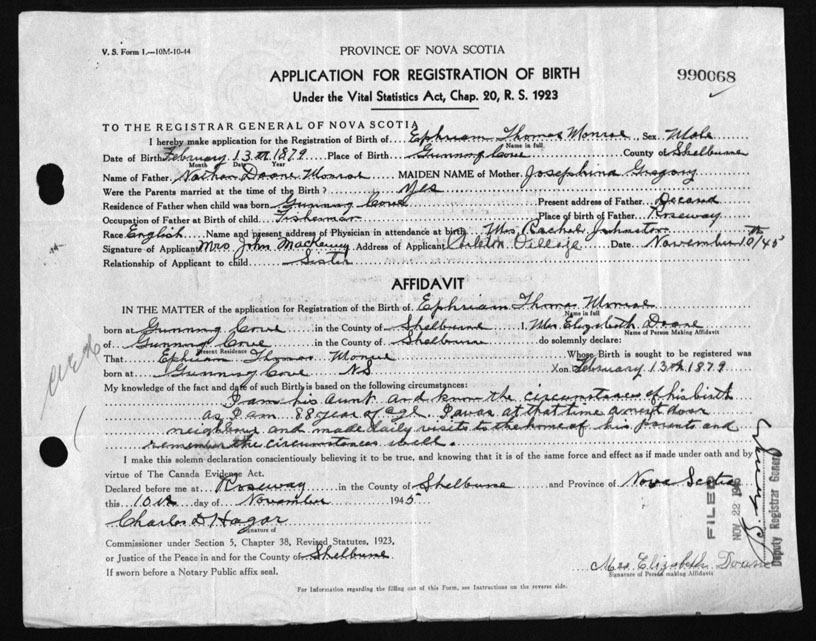 V. S. Form 1.—10M-10-44
PROVINCE OF NOVA SCOTIA
APPLICATION FOR REGISTRATION OF BIRTH
990068
Under the Vital Statistics Act, Chap. 20, R. S. 1923
TO THE REGISTRAR GENERAL OF NOVA SCOTIA
I hereby make application for the Registration of Birth of Ephriam Thomas Monroe Sex Male
Name in full
Date of Birth February 13th 1879 Place of Birth Gunning Cove County of Shelburne
Month Date Year
Name of Father Nathan Doane Monroe MAIDEN NAME of Mother Josephina Gregory
Were the Parents married at the time of the Birth? Yes
Residence of Father when child was born Gunning Cove Present address of Father Decand
Occupation of Father at Birth of child Fisherman Place of birth of Father Roseway
Race English Name and present address of Physician in attendance at birth Mrs Rachel Johnston
Signature of Applicant Mrs John MacKenny Address of Applicant Village Date November 10th/45
Relationship of Applicant to child Sister
AFFIDAVIT
IN THE MATTER of the application for Registration of the Birth of Ephriam Thomas Monroe
Name in full
born at Gunning Cove in the County of Shelburne I, Mrs Elizabeth Doane
Name of Person Making Affidavit
of Gunning Cove in the County of Shelburne do solemnly declare:
Present Residence
That Ephriam Thomas Monroe Whose Birth is sought to be registered was
born at Gunning Cove N.S on February 13th 1879
My knowledge of the fact and date of such Birth is based on the following circumstances:
I am his aunt and know the circumstances of his birth
as I am 88 year of age. I was at that time a next door
neighbour and made daily visits to the home of his parents and
remember the circumstances well.
I make this solemn declaration conscientiously believing it to be true, and knowing that it is of the same force and effect as if made under oath and by
virtue of The Canada Evidence Act.
Declared before me at Roseway in the County of Shelburne and Province of Nova Scotia
this 10th day of November 1945
Charles D Hagar
Signature of
Commissioner under Section 5, Chapter 38, Revised Statutes, 1923,
or Justice of the Peace in and for the County of Shelburne
If sworn before a Notary Public affix seal.
Mrs. Elizabeth Doane
Signature of Person making Affidavit
For Information regarding the filling out of this Form, see Instructions on the reverse side.
FILED
NOV 22 1945
Deputy Registrar General